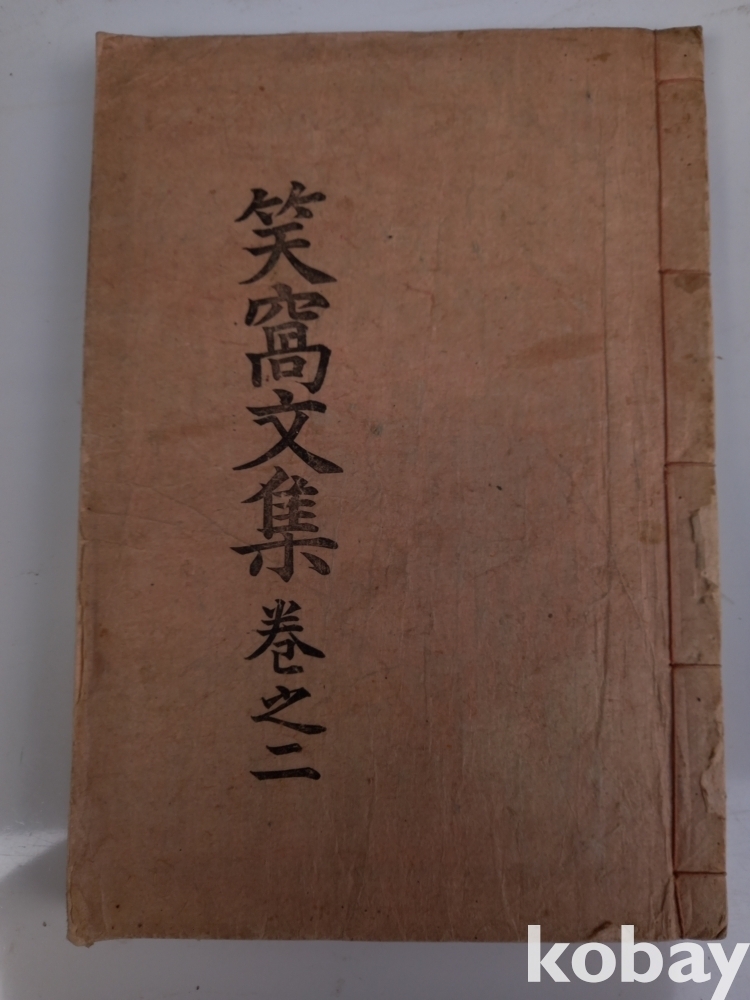 笑窩文集 卷之二
kobay